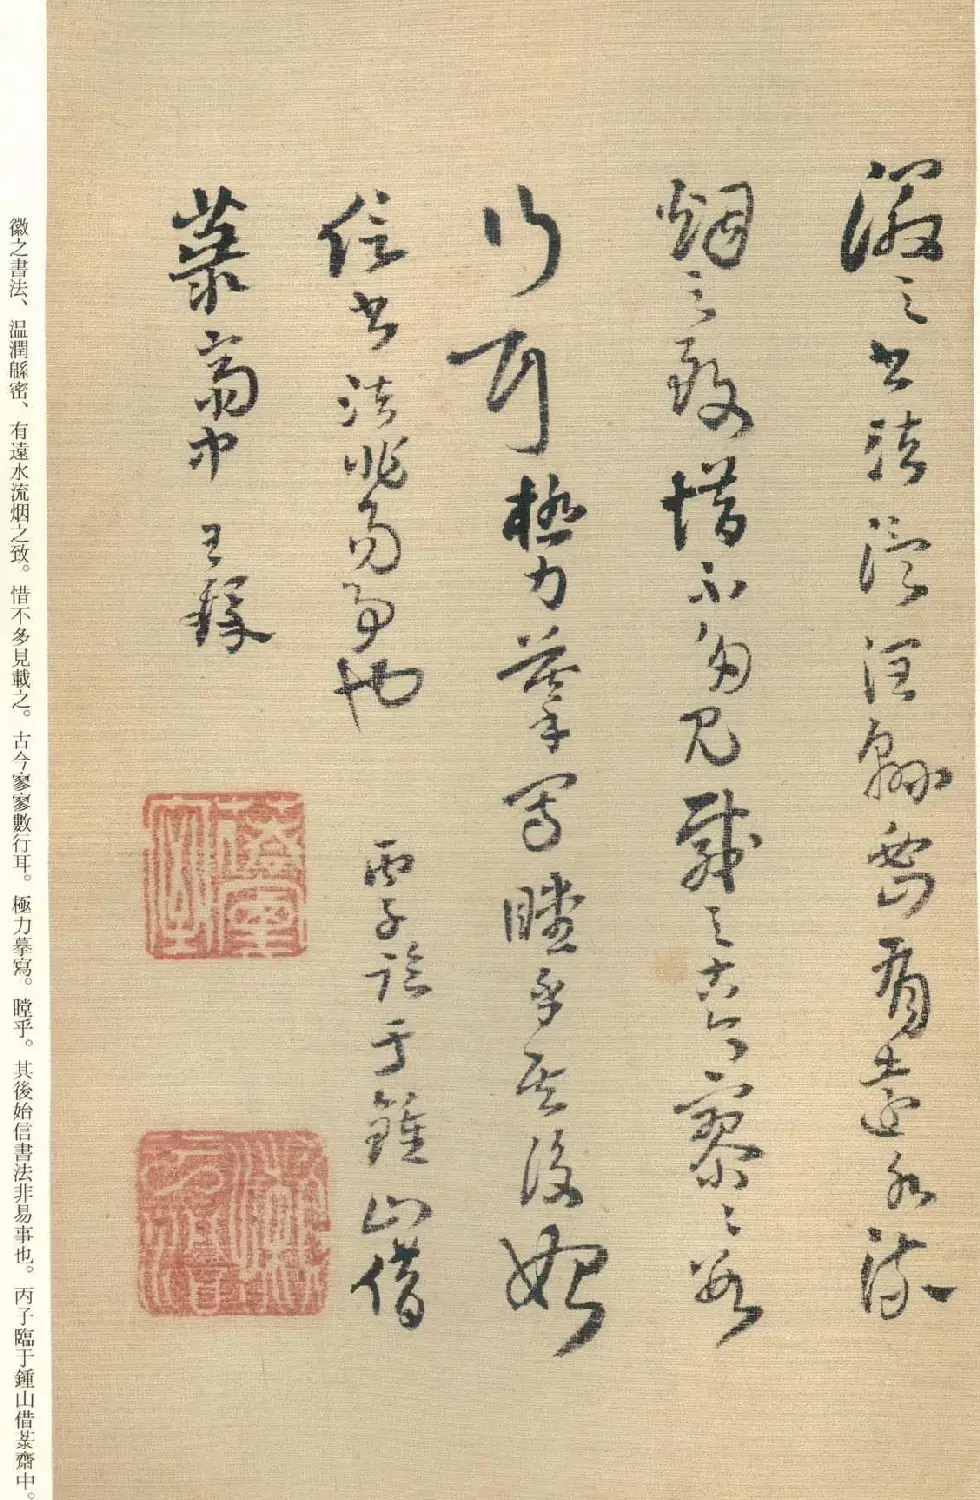 徽之書法温潤緜密有遠水流
烟之致惜不多見載之古今寥〻數
行耳極力摹寫瞠乎其後始
信書法非易事也 丙子臨于鍾山借
菉齋中 王鐸
徽之書法、温潤緜密、有遠水流烟之致。惜不多見載之。古今寥寥數行耳。極力摹寫。瞠乎。其後始信書法非易事也。丙子臨于鍾山借菉齋中。